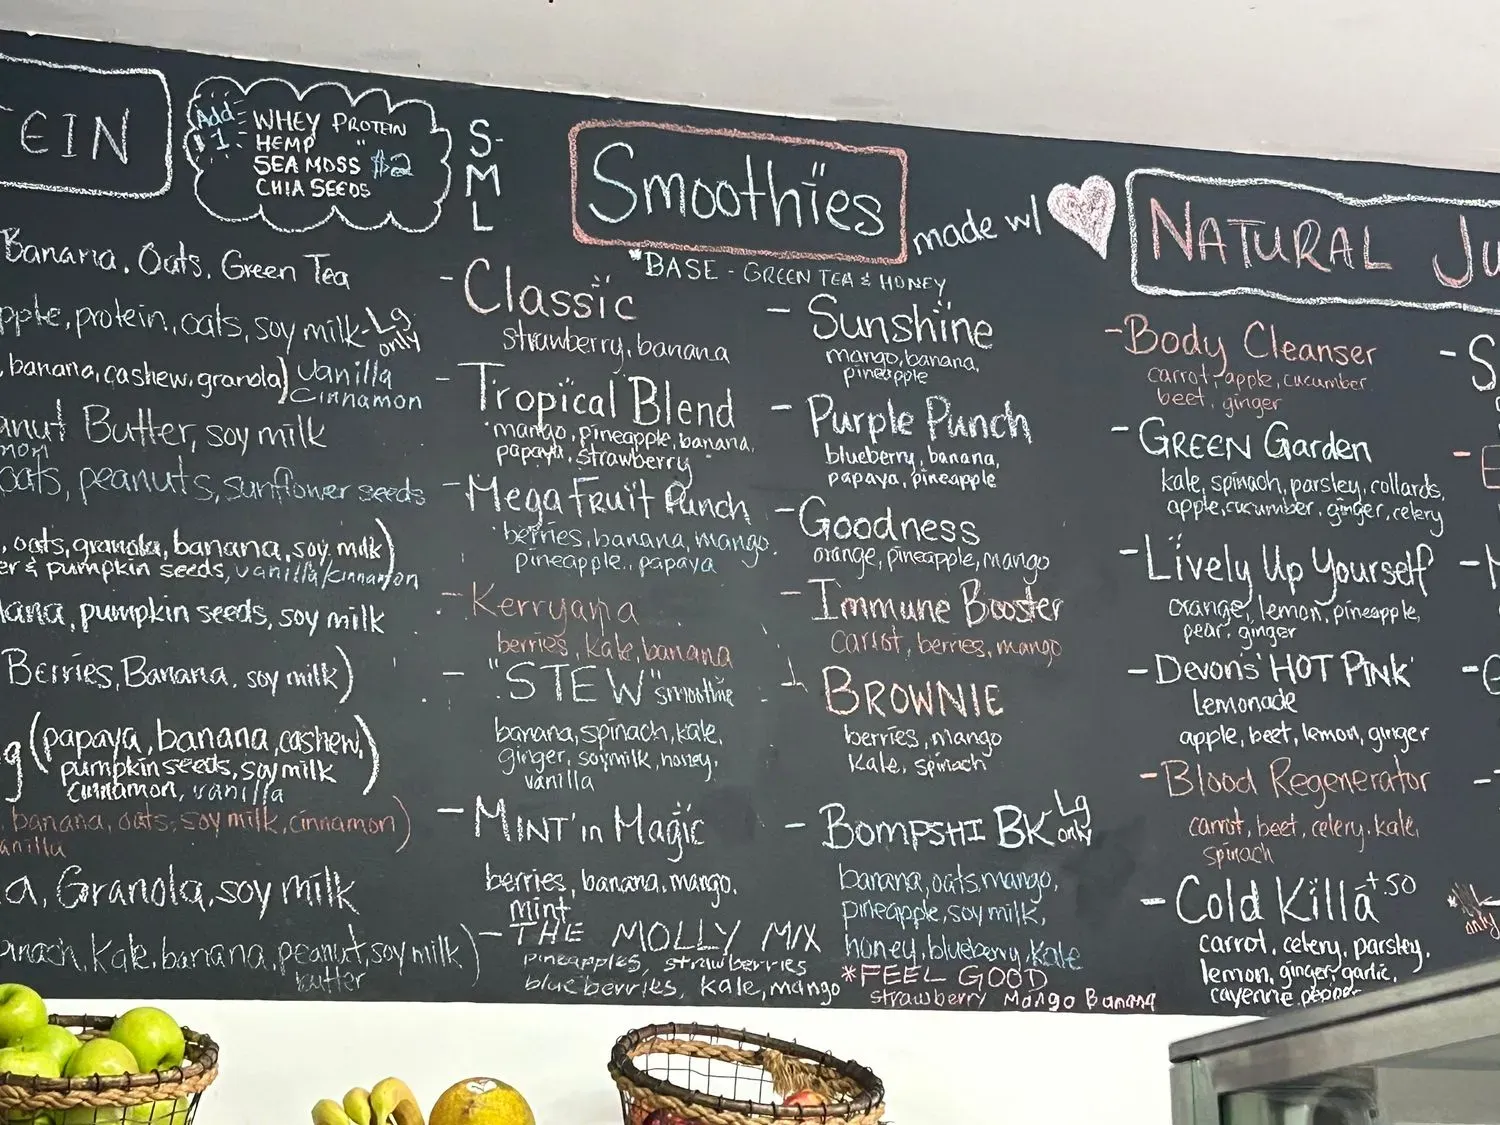 EIN
Add
1
WHEY PROTEIN
HEMP "
SEA MOSS $2
CHIA SEEDS
Banana. Oats. Green Tea
protein, oats, soy milk - Lg
only
banana, cashew, granola) vanilla
cinnamon
Butter, soy milk
oats, peanuts, sunflower seeds
oats, granola, banana, soy milk)
& pumpkin seeds, vanilla/cinnamon
pumpkin seeds, soy milk
Berries, Banana, soy milk)
g (papaya, banana, cashew,
pumpkin seeds, soy milk
cinnamon, vanilla)
banana, oats, soy milk, cinnamon)
a, Granola, soy milk
Kale, banana, peanut, soy milk)
butter
S-
M
L
Smoothies
made w/
*BASE - GREEN TEA & HONEY
- Classic
strawberry, banana
- Tropical Blend
mango, pineapple, banana,
papaya, strawberry
- Mega Fruit Punch
berries, banana, mango,
pineapple, papaya
- Kerryana
berries, kale, banana
- "STEW" smoothie
banana, spinach, kale,
ginger, soymilk, honey,
vanilla
- MINT' in Magic
berries, banana, mango,
mint
- THE MOLLY MIX
pineapples, strawberries
blueberries, kale, mango
- Sunshine
mango, banana,
pineapple
- Purple Punch
blueberry, banana,
papaya, pineapple
- Goodness
orange, pineapple, mango
- Immune Booster
carrot, berries, mango
- BROWNIE
berries, mango
kale, spinach
- BOMPSHI BK Lg
only
banana, oats, mango,
pineapple, soy milk,
honey, blueberry, kale
*FEEL GOOD
strawberry Mango Banana
NATURAL Ju
- Body Cleanser
carrot, apple, cucumber
beet, ginger
- GREEN Garden
kale, spinach, parsley, collards,
apple, cucumber, ginger, celery
- Lively Up Yourself
orange, lemon, pineapple,
pear, ginger
- Devon's 'HOT PINK'
Lemonade
apple, beet, lemon, ginger
- Blood Regenerator
carrot, beet, celery, kale,
spinach
- Cold Killa +50
carrot, celery, parsley,
lemon, ginger, garlic,
cayenne pepper
- S
only